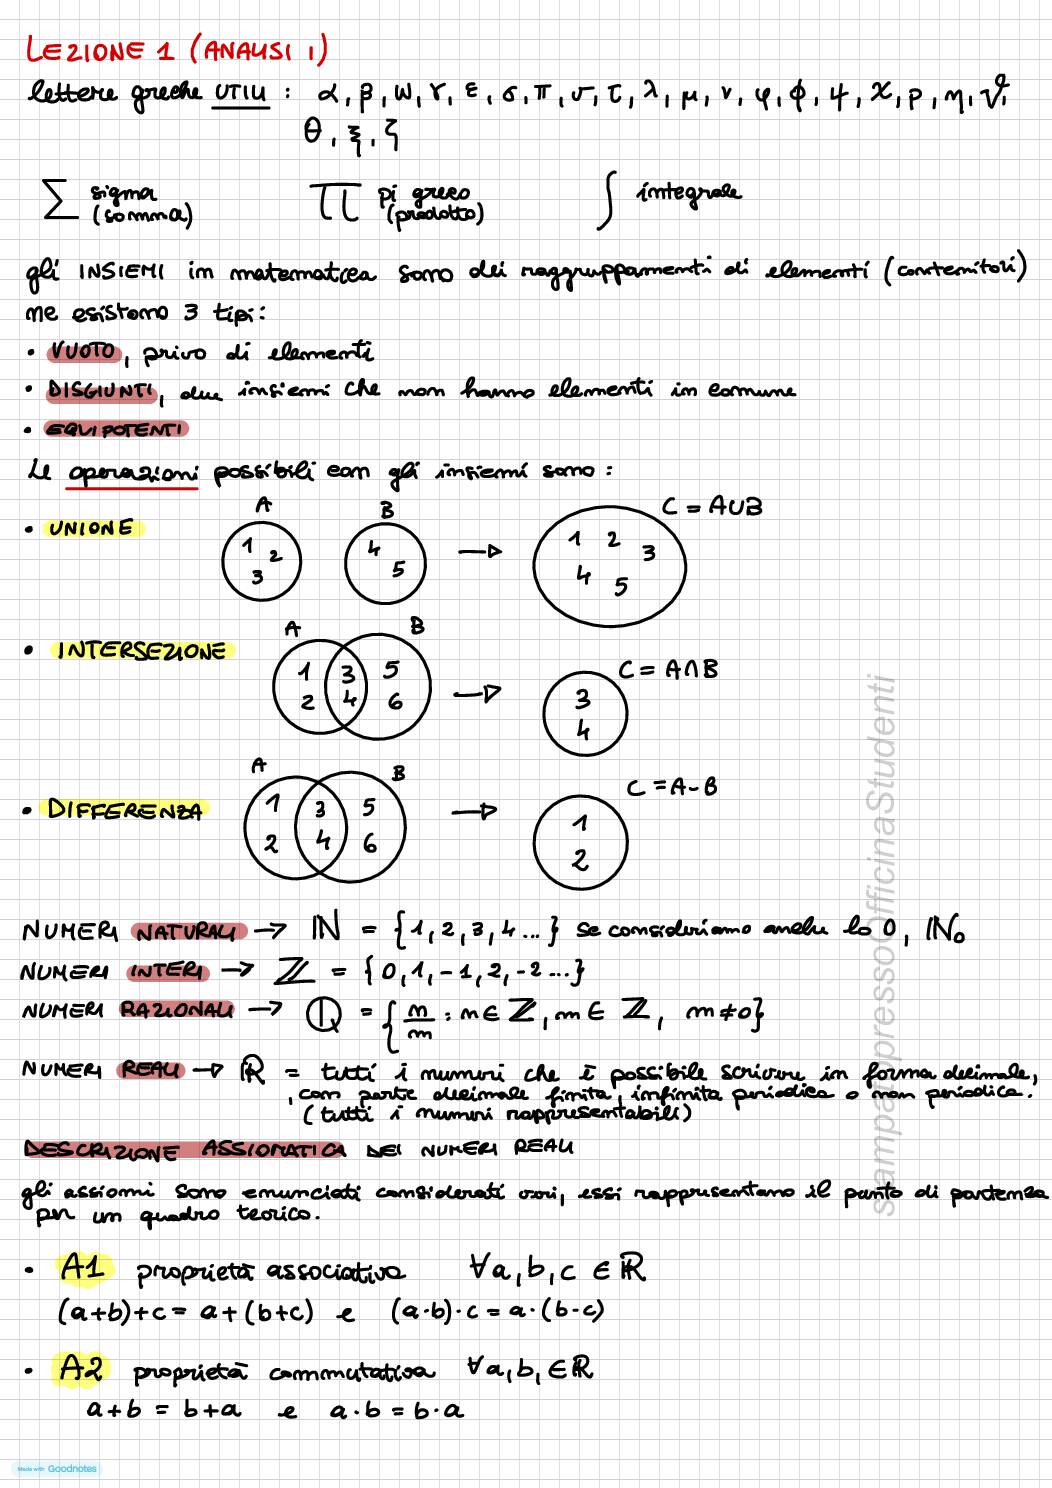 LEZIONE 1 (ANALISI 1)
lettere greche UTILI : α, β, ω, γ, ε, σ, π, σ, τ, λ, μ, ν, φ, ϕ, ψ, χ, ρ, η, ϑ,
θ, ξ, ζ
∑ sigma (somma) ∏ pi greco (prodotto) ∫ integrale
gli INSIEMI in matematica sono dei raggruppamenti di elementi (contenitori)
ne esistono 3 tipi:
• VUOTO, privo di elementi
• DISGIUNTI, due insiemi che non hanno elementi in comune
• EQUIPOTENTI
Le operazioni possibili con gli insiemi sono :
• UNIONE A 1 2 3 B 4 5 → C = A∪B 1 2 3 4 5
• INTERSEZIONE A 1 2 3 4 B 5 6 → C = A∩B 3 4
• DIFFERENZA A 1 2 3 4 B 5 6 → C = A-B 1 2
NUMERI NATURALI → ℕ = {1, 2, 3, 4 ...} se consideriamo anche lo 0, ℕ₀
NUMERI INTERI → ℤ = {0, 1, -1, 2, -2 ...}
NUMERI RAZIONALI → ℚ = {m/n : m ∈ ℤ, n ∈ ℤ, n ≠ 0}
NUMERI REALI → ℝ = tutti i numeri che è possibile scrivere in forma decimale,
con parte decimale finita, infinita periodica o non periodica.
(tutti i numeri rappresentabili)
DESCRIZIONE ASSIOMATICA DEI NUMERI REALI
gli assiomi sono enunciati considerati veri, essi rappresentano il punto di partenza
per un quadro teorico.
• A1 proprietà associativa ∀a, b, c ∈ ℝ
(a+b)+c = a+(b+c) e (a·b)·c = a·(b·c)
• A2 proprietà commutativa ∀a, b, ∈ ℝ
a+b = b+a e a·b = b·a
stampatopressoOfficinaStudenti
Made with Goodnotes